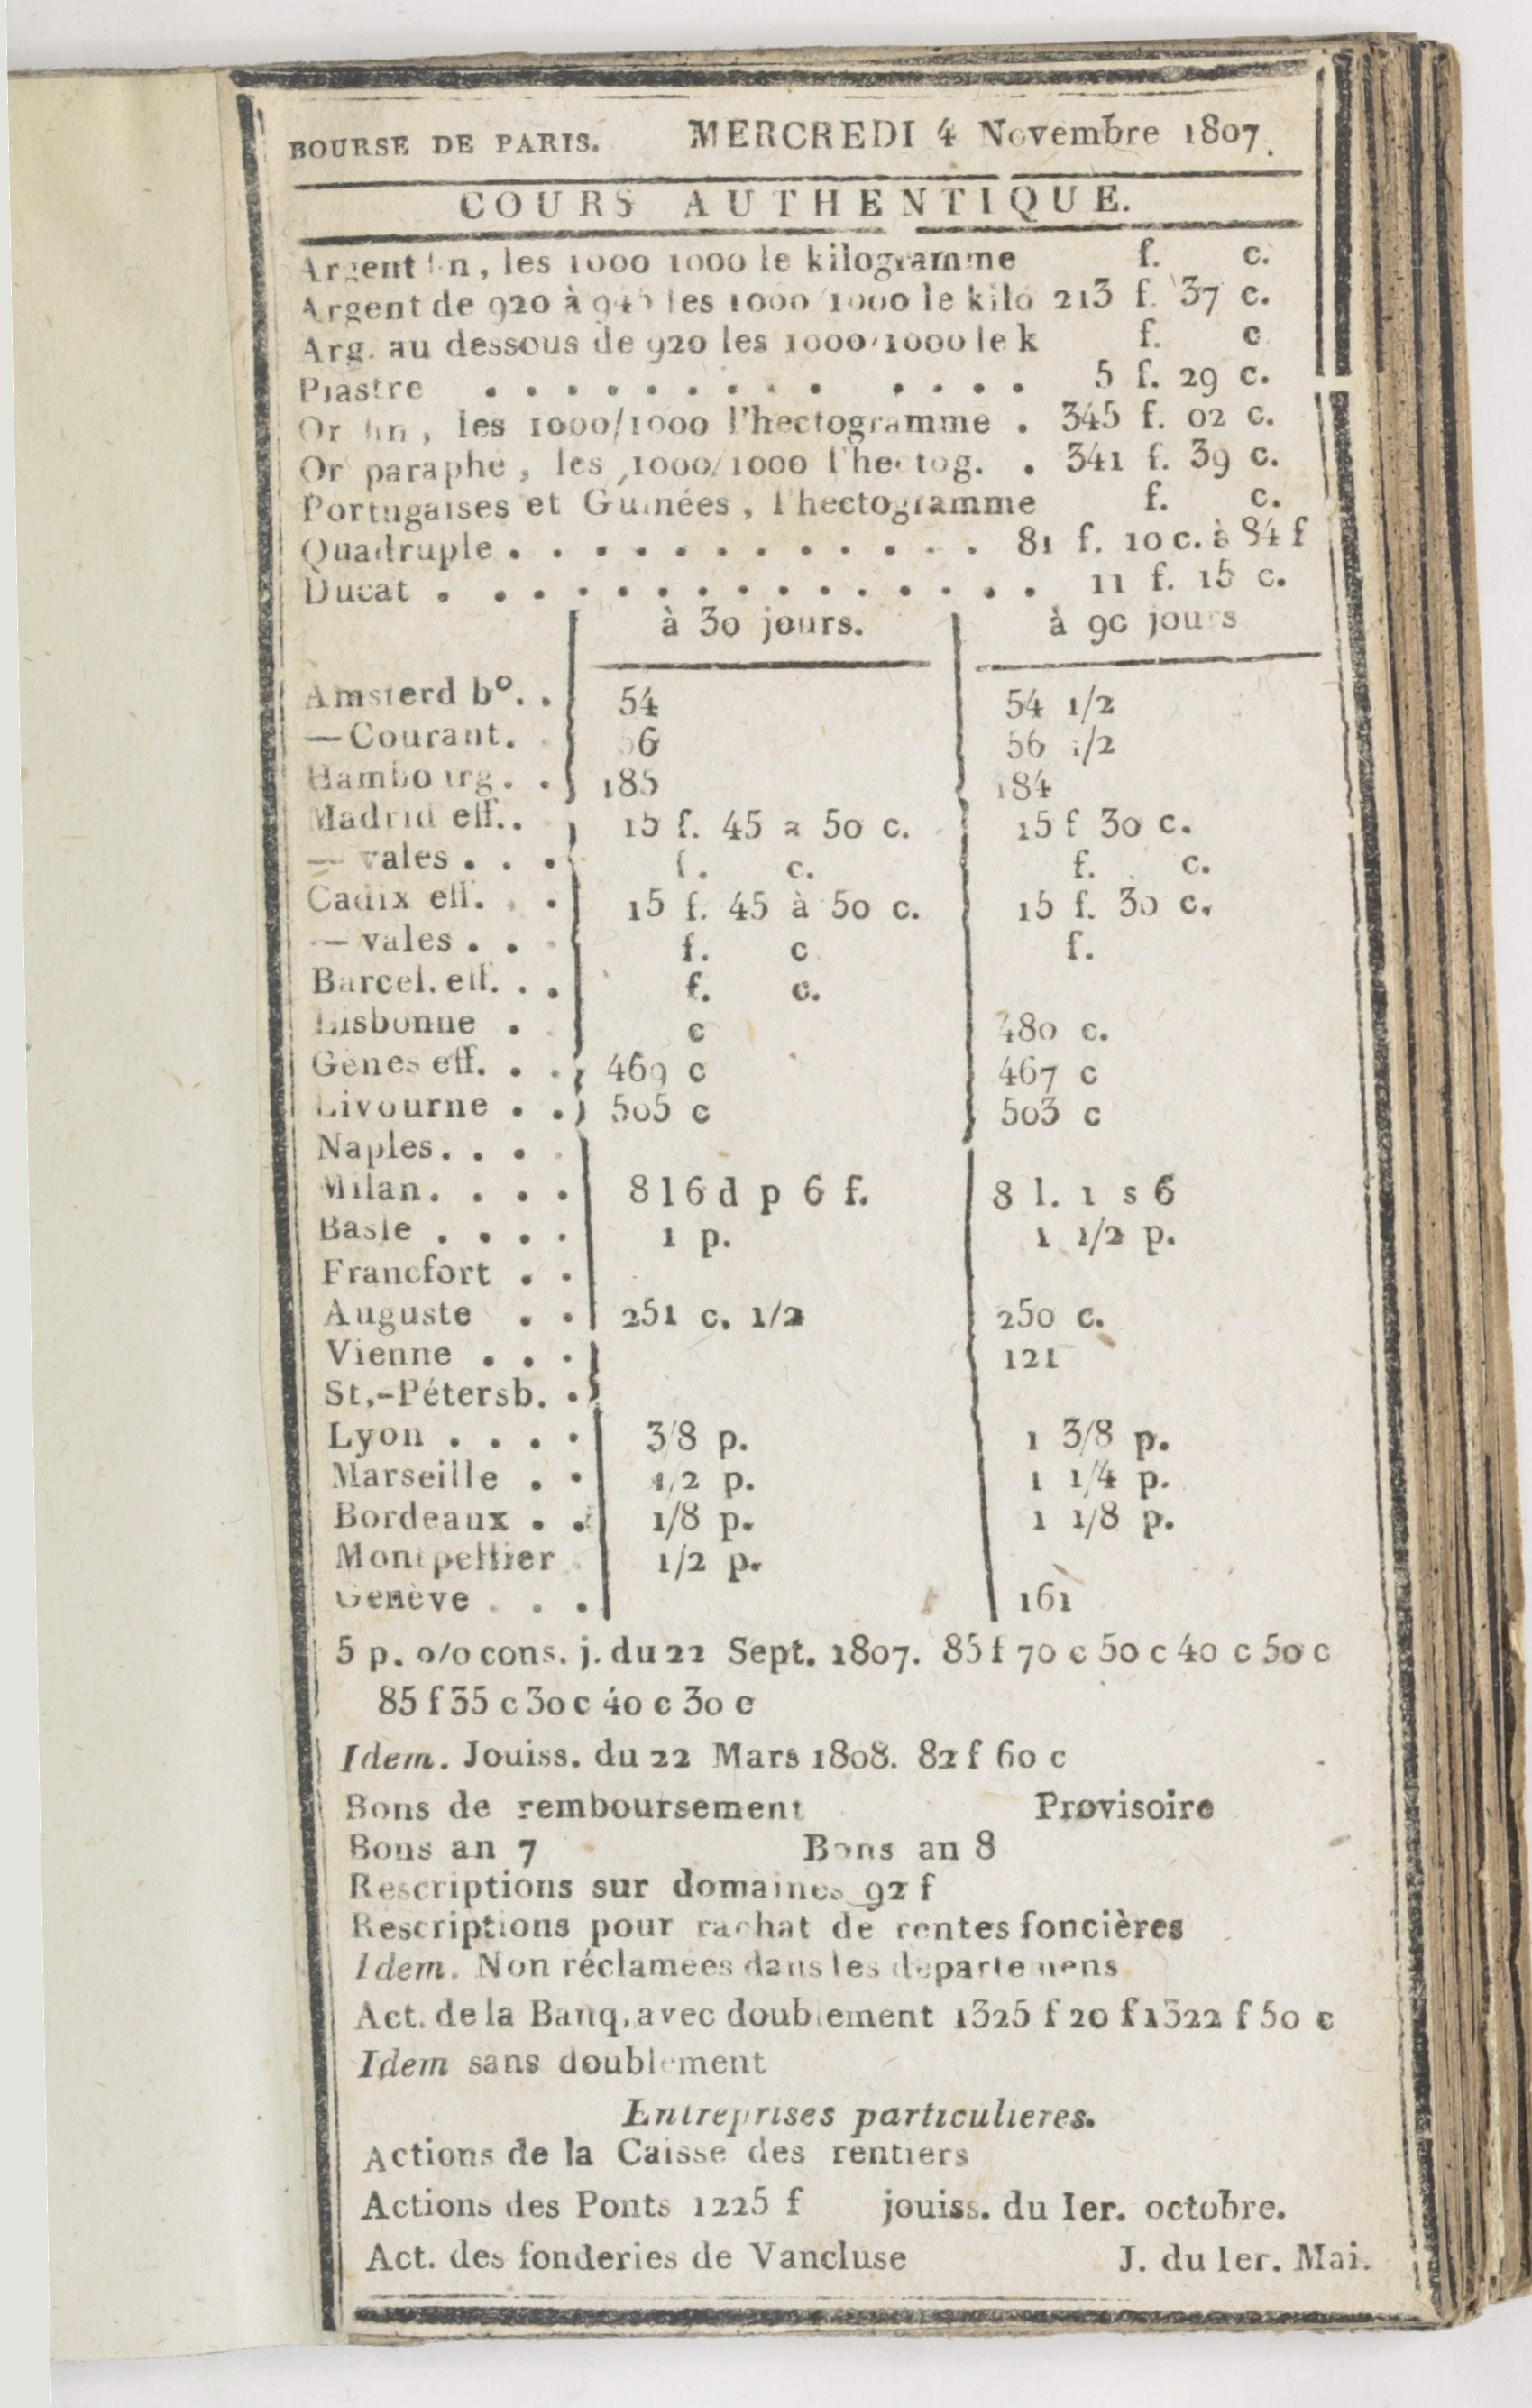 BOURSE DE PARIS. MERCREDI 4 Novembre 1807.
COURS AUTHENTIQUE.
Argent fin, les 1000 1000 le kilogramme f. c.
Argent de 920 à 945 les 1000/1000 le kilo 213 f. 37 c.
Arg. au dessous de 920 les 1000/1000 le k f. c
Piastre . . . . . . . . . . . . . 5 f. 29 c.
Or fin, les 1000/1000 l'hectogramme . 345 f. 02 c.
Or paraphe, les 1000/1000 l'hectog. . 341 f. 39 c.
Portugaises et Guinées, l'hectogramme f. c.
Quadruple . . . . . . . . . . . . 81 f. 10 c. à 84 f
Ducat . . . . . . . . . . . . . . . 11 f. 15 c.
à 30 jours. à 90 jours
Amsterd b°. . 54 54 1/2
—Courant. . 56 56 1/2
Hambourg. . 185 184
Madrid eff.. 15 f. 45 a 50 c. 15 f 30 c.
— vales . . . f. c. f. c.
Cadix eff. . . 15 f. 45 à 50 c. 15 f. 30 c.
— vales . . . f. c f.
Barcel. eff. . . f. c.
Lisbonne . c 480 c.
Gênes eff. . . 469 c 467 c
Livourne . . 505 c 503 c
Naples. . . .
Milan. . . . 8 16 d p 6 f. 8 l. 1 s 6
Basle . . . . 1 p. 1 1/2 p.
Francfort . .
Auguste . . 251 c. 1/2 250 c.
Vienne . . . 121
St.-Pétersb. .
Lyon . . . . 3/8 p. 1 3/8 p.
Marseille . . 1/2 p. 1 1/4 p.
Bordeaux . . 1/8 p. 1 1/8 p.
Montpellier . 1/2 p.
Genève . . . 161
5 p. 0/0 cons. j. du 22 Sept. 1807. 85 f 70 c 50 c 40 c 50 c
85 f 35 c 30 c 40 c 30 c
Idem. Jouiss. du 22 Mars 1808. 82 f 60 c
Bons de remboursement Provisoire
Bons an 7 Bons an 8
Rescriptions sur domaines 92 f
Rescriptions pour rachat de rentes foncières
Idem. Non réclamées dans les departemens
Act. de la Banq. avec doublement 1325 f 20 f 1322 f 50 c
Idem sans doublement
Entreprises particulieres.
Actions de la Caisse des rentiers
Actions des Ponts 1225 f jouiss. du 1er. octobre.
Act. des fonderies de Vancluse J. du 1er. Mai.